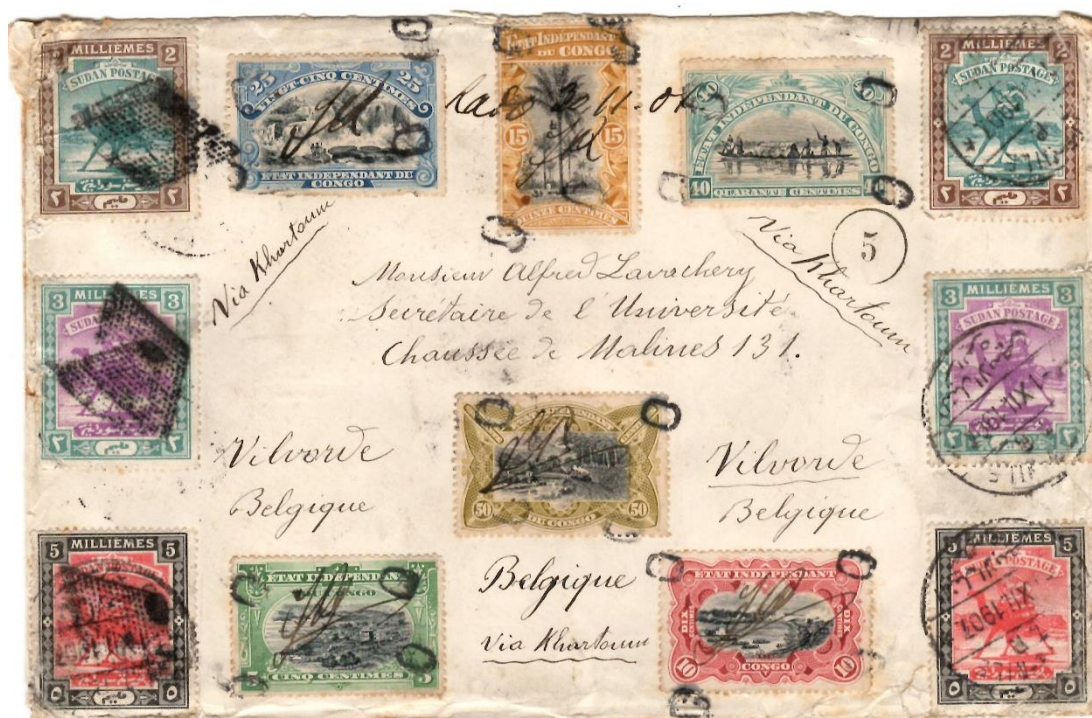 2 MILLIÈMES 2
SUDAN POSTAGE
٢ ٢
25 25
VINGT-CINQ CENTIMES
ETAT INDEPENDANT DU
CONGO
ETAT INDEPENDANT
DU CONGO
15 15
QUINZE CENTIMES
Lado 30 11-07
40 40
ETAT INDEPENDANT DU CONGO
40
QUARANTE CENTIMES
2 MILLIÈMES 2
SUDAN POSTAGE
٢ ٢
Via Khartoum
Via Khartoum
5
Monsieur Alfred Lavachery
Secrétaire de l'Université
Chaussée de Malines 131.
3 MILLIÈMES 3
SUDAN POSTAGE
٣ ٣
3 MILLIÈMES 3
SUDAN POSTAGE
XII-1907
٣ ٣
50 50
DU CONGO
Vilvorde
Belgique
Vilvorde
Belgique
5 MILLIÈMES 5
٥ ٥
ETAT INDEPENDANT
DU CONGO
5 5
CINQ CENTIMES
Belgique
Via Khartoum
ETAT INDEPENDANT
DU
DIX DIX
10 10
CONGO
5 MILLIÈMES 5
SUDAN POSTAGE
XII-1907
٥ ٥